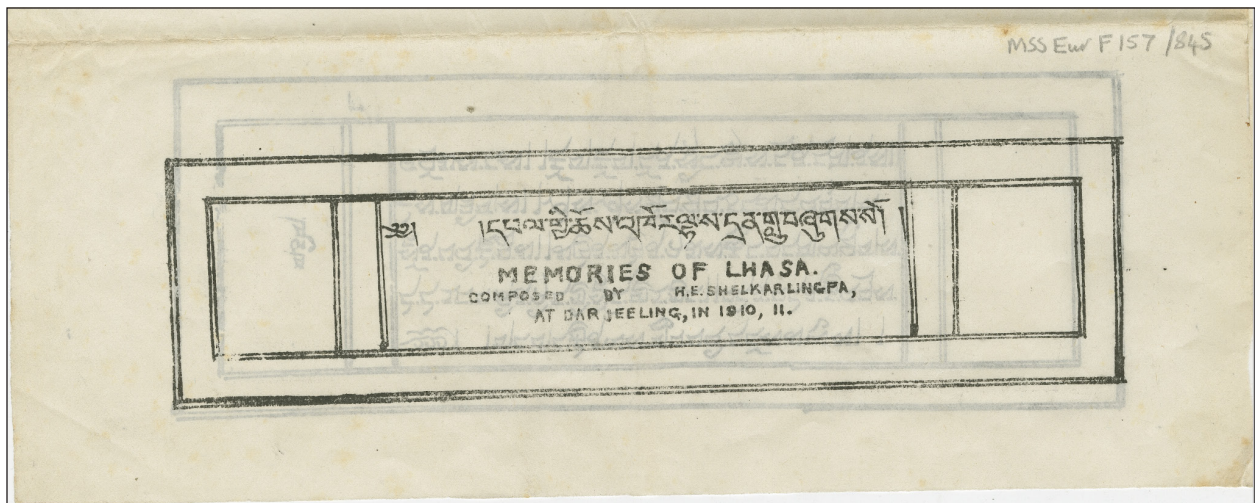 MSS Eur F 157 /845
༄༅། །དཔལ་གྱི་ཆོས་འཁོར་ལྷ་ས་དྲན་གླུ་བཞུགས་སོ། །
MEMORIES OF LHASA.
COMPOSED BY H.E. SHELKARLINGPA,
AT DARJEELING, IN 1910, 11.